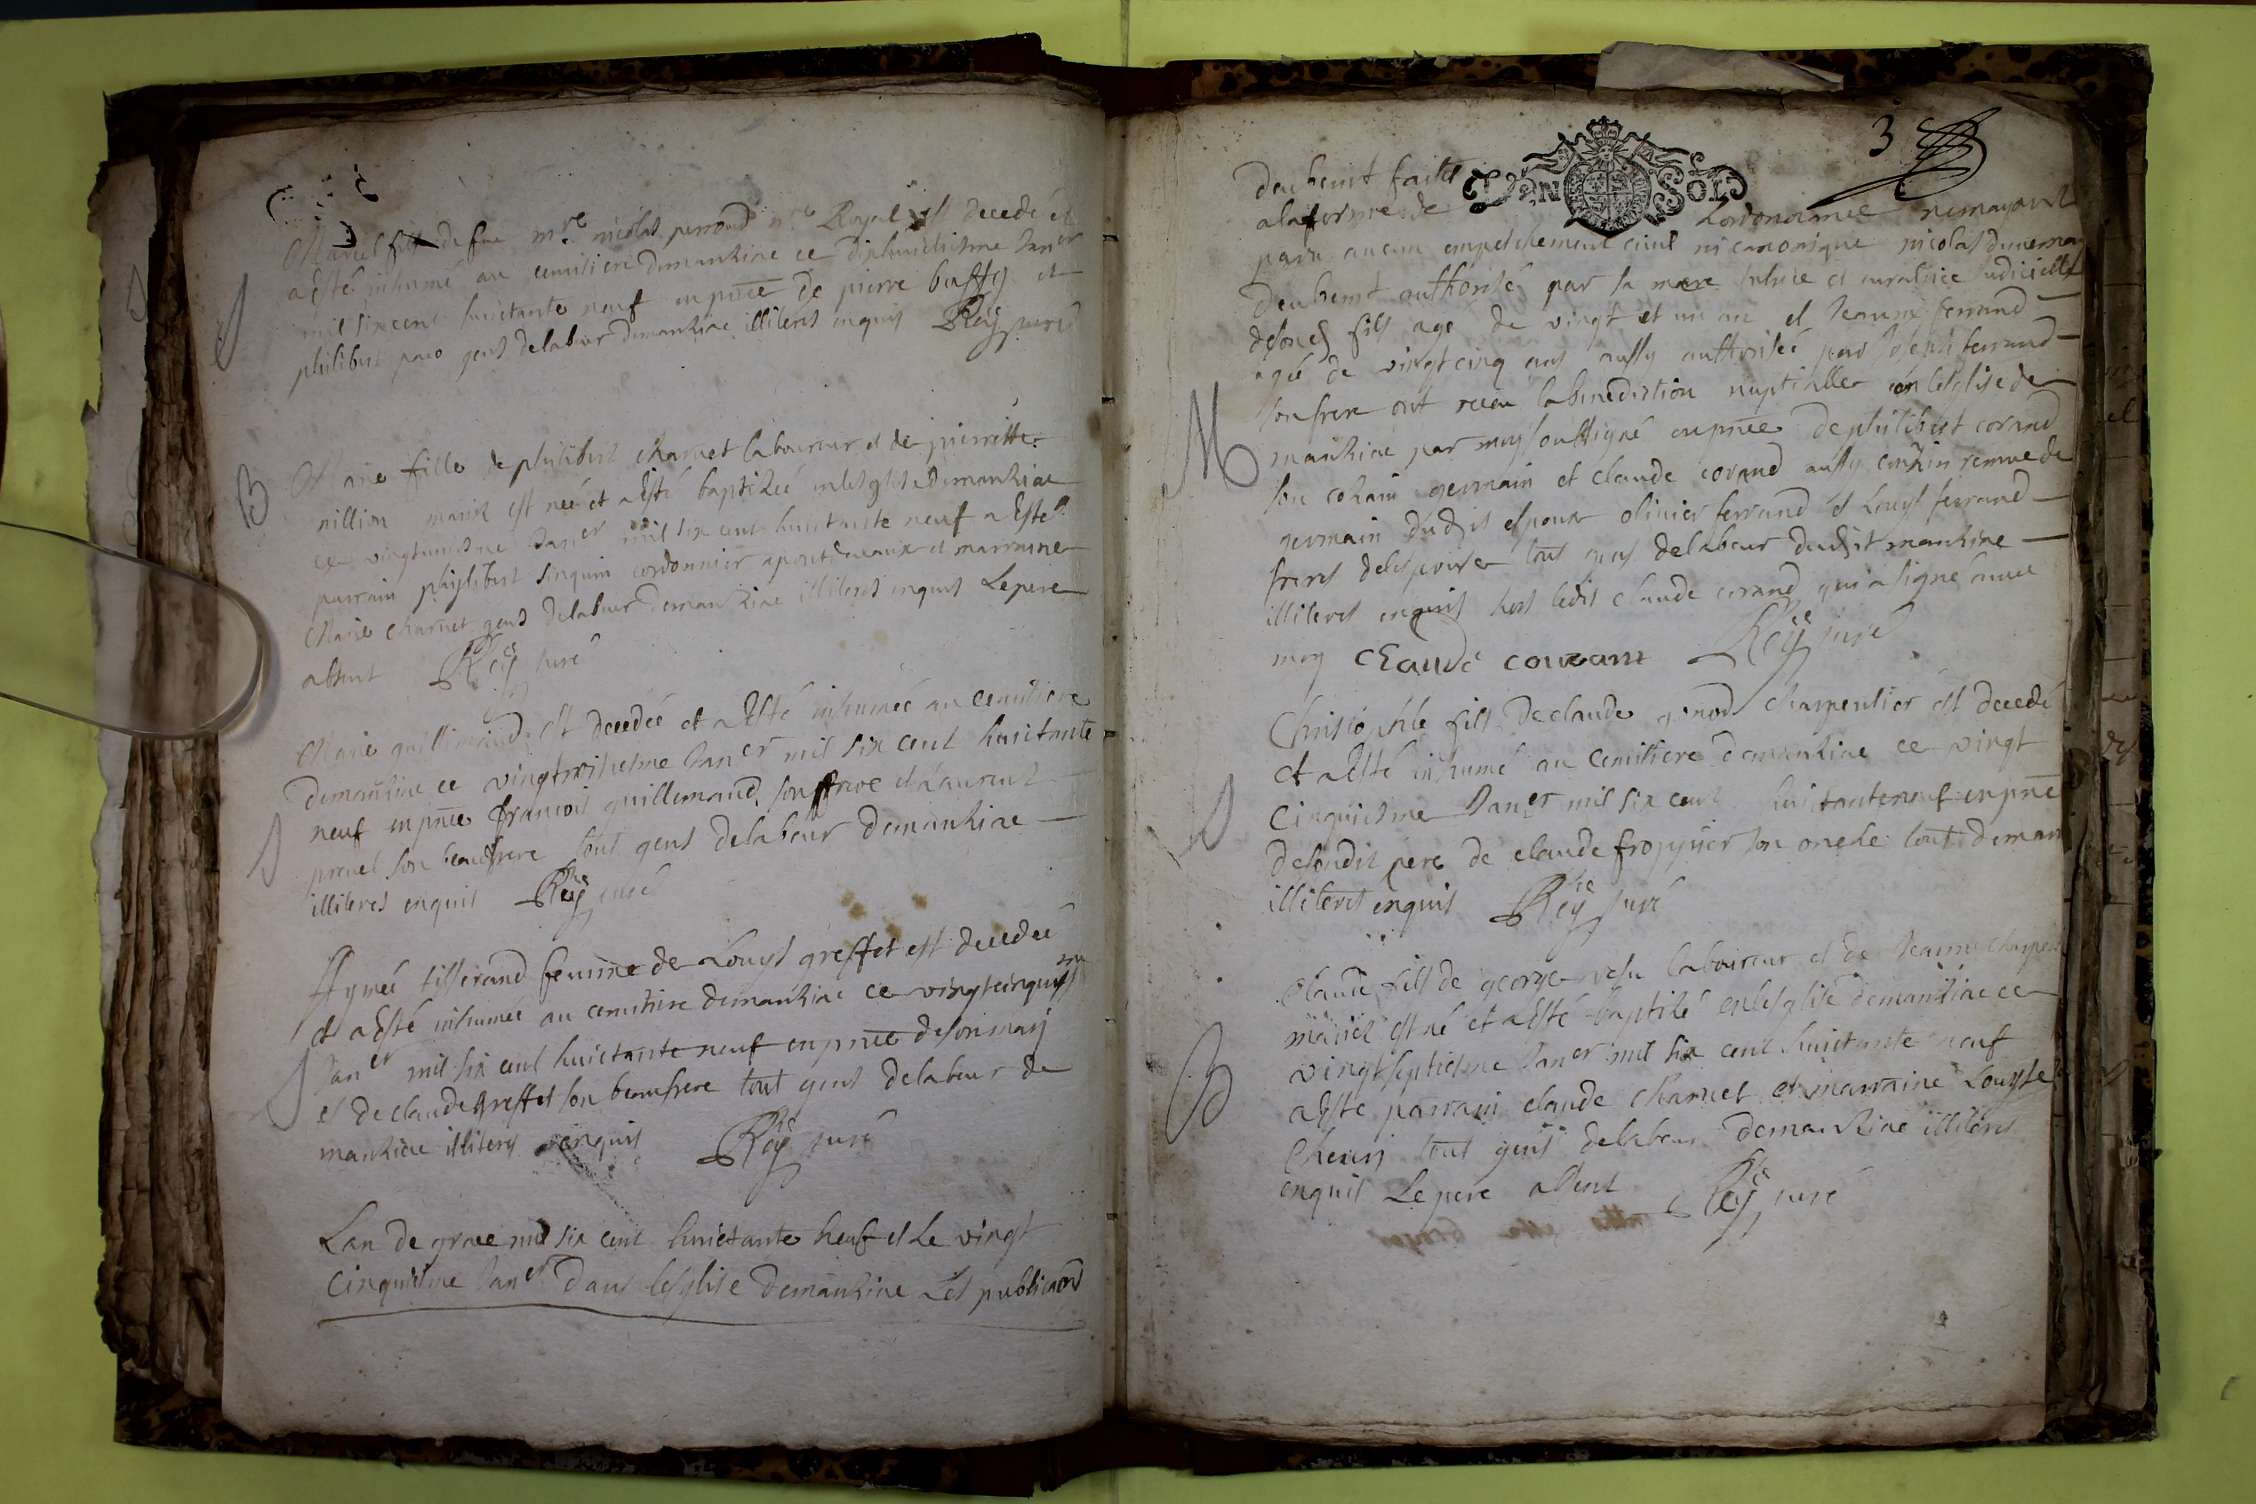 Marcel fils de feu mre nicolas perrond nre Royal est decedé et
a Esté inhumé au cemitiere demanziac ce dixhuictiesme Janer
mil six cent huictante neuf en pnce De pierre buffy et
philibert paco gens delabeur demanziac illiteres enquis Rey curé
B
Marie fille de philibert charnet laboureur et de pierrette
nillion mariez est née et a Esté baptizée en lesglise demanziac
ce vingtuniesme Janer mil six cent huictante neuf a Esté
parrain philibert sinquin cordonnier apontdevaux et marraine
Marie charnet gens delabeur demanziac illiteres enquis Lepere
absent Rey curé
Marie guillemaud est decedée et a Esté inhumée au cemitiere
demanziac ce vingttroisiesme Janer mil six cent huictante
neuf en pnce francois guillemaud son frere et Laurent
pruel son beaufrere tout gens delabeur demanziac
illiteres enquis Rey curé
Aymée tisserand femme de Louys greffet est decedée
et a Esté inhumée au cemitiere demanziac ce vingtcinquiesme
Janer mil six cent huictante neuf en pnce deson mary
et de claude greffet son beaufrere tout gens delabeur de
manziac illiteres enquis Rey curé
Lan de grace mil six cent huictante neuf et le vingt
cinquiesme Janer Dans lesglise demanziac Les publicaons
3
DEN SOL
deuhemt faites
alaforme de Lordonnance nemayant
paru aucun empeschement civil ni canonique nicolas
deuhemt authorisé par sa mere tutrice et curatrice Judicielle
desond fils age de vingt et un an et Jeanne ferrand
agée de vingt cinq ans aussy authorisée par Joseph ferrand
son frere ont receu la benediction nuptialle en lesglise de
M
manziac par moy soussigné en pnce de philibert corand
son cozain germain et claude corand aussy cozin remue de
germain dudit espoux olivier ferrand et Louys ferrand
freres delespouse tous gens delabeur dudit manziac
illiteres enquis hors ledit claude corand qui a signé avec
moy claude couran Rey curé
Christophle fils declaude genod charpentier est decedé
et a Esté inhumé au cemitiere demanziac ce vingt
cinquiesme Janer mil six cent huictanteneuf en pnce
desondit pere de claude froppier son oncle tout deman
illiteres enquis Rey curé
Claude fils de george velu laboureur et de Jeanne
mariez est né et a Esté baptizé en lesglise demanziac ce
B
vingt septiesme Janer mil six cent huictante neuf
a Esté parrain claude charnet et marraine Louyse
Chevry tout gens delabeur demanziac illiteres
enquis Lepere absent Rey curé